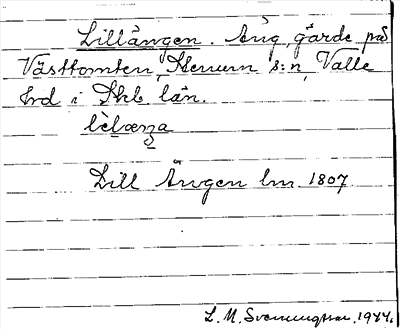 Lillängen. Äng, gärde på
Västtomten, Stenum s:n, Valle
hrd i Skb. län.
lìlæŋa
Lill Ängen lm. 1807
L. M. Svenungsson, 1944.